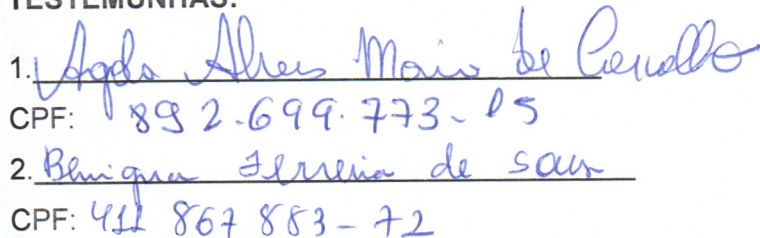 TESTEMUNHAS:
1. Agda Alves Maia de Carvalho
CPF: 892.699.773-05
2. Benigna Ferreira de Sousa
CPF: 411 867 883-72